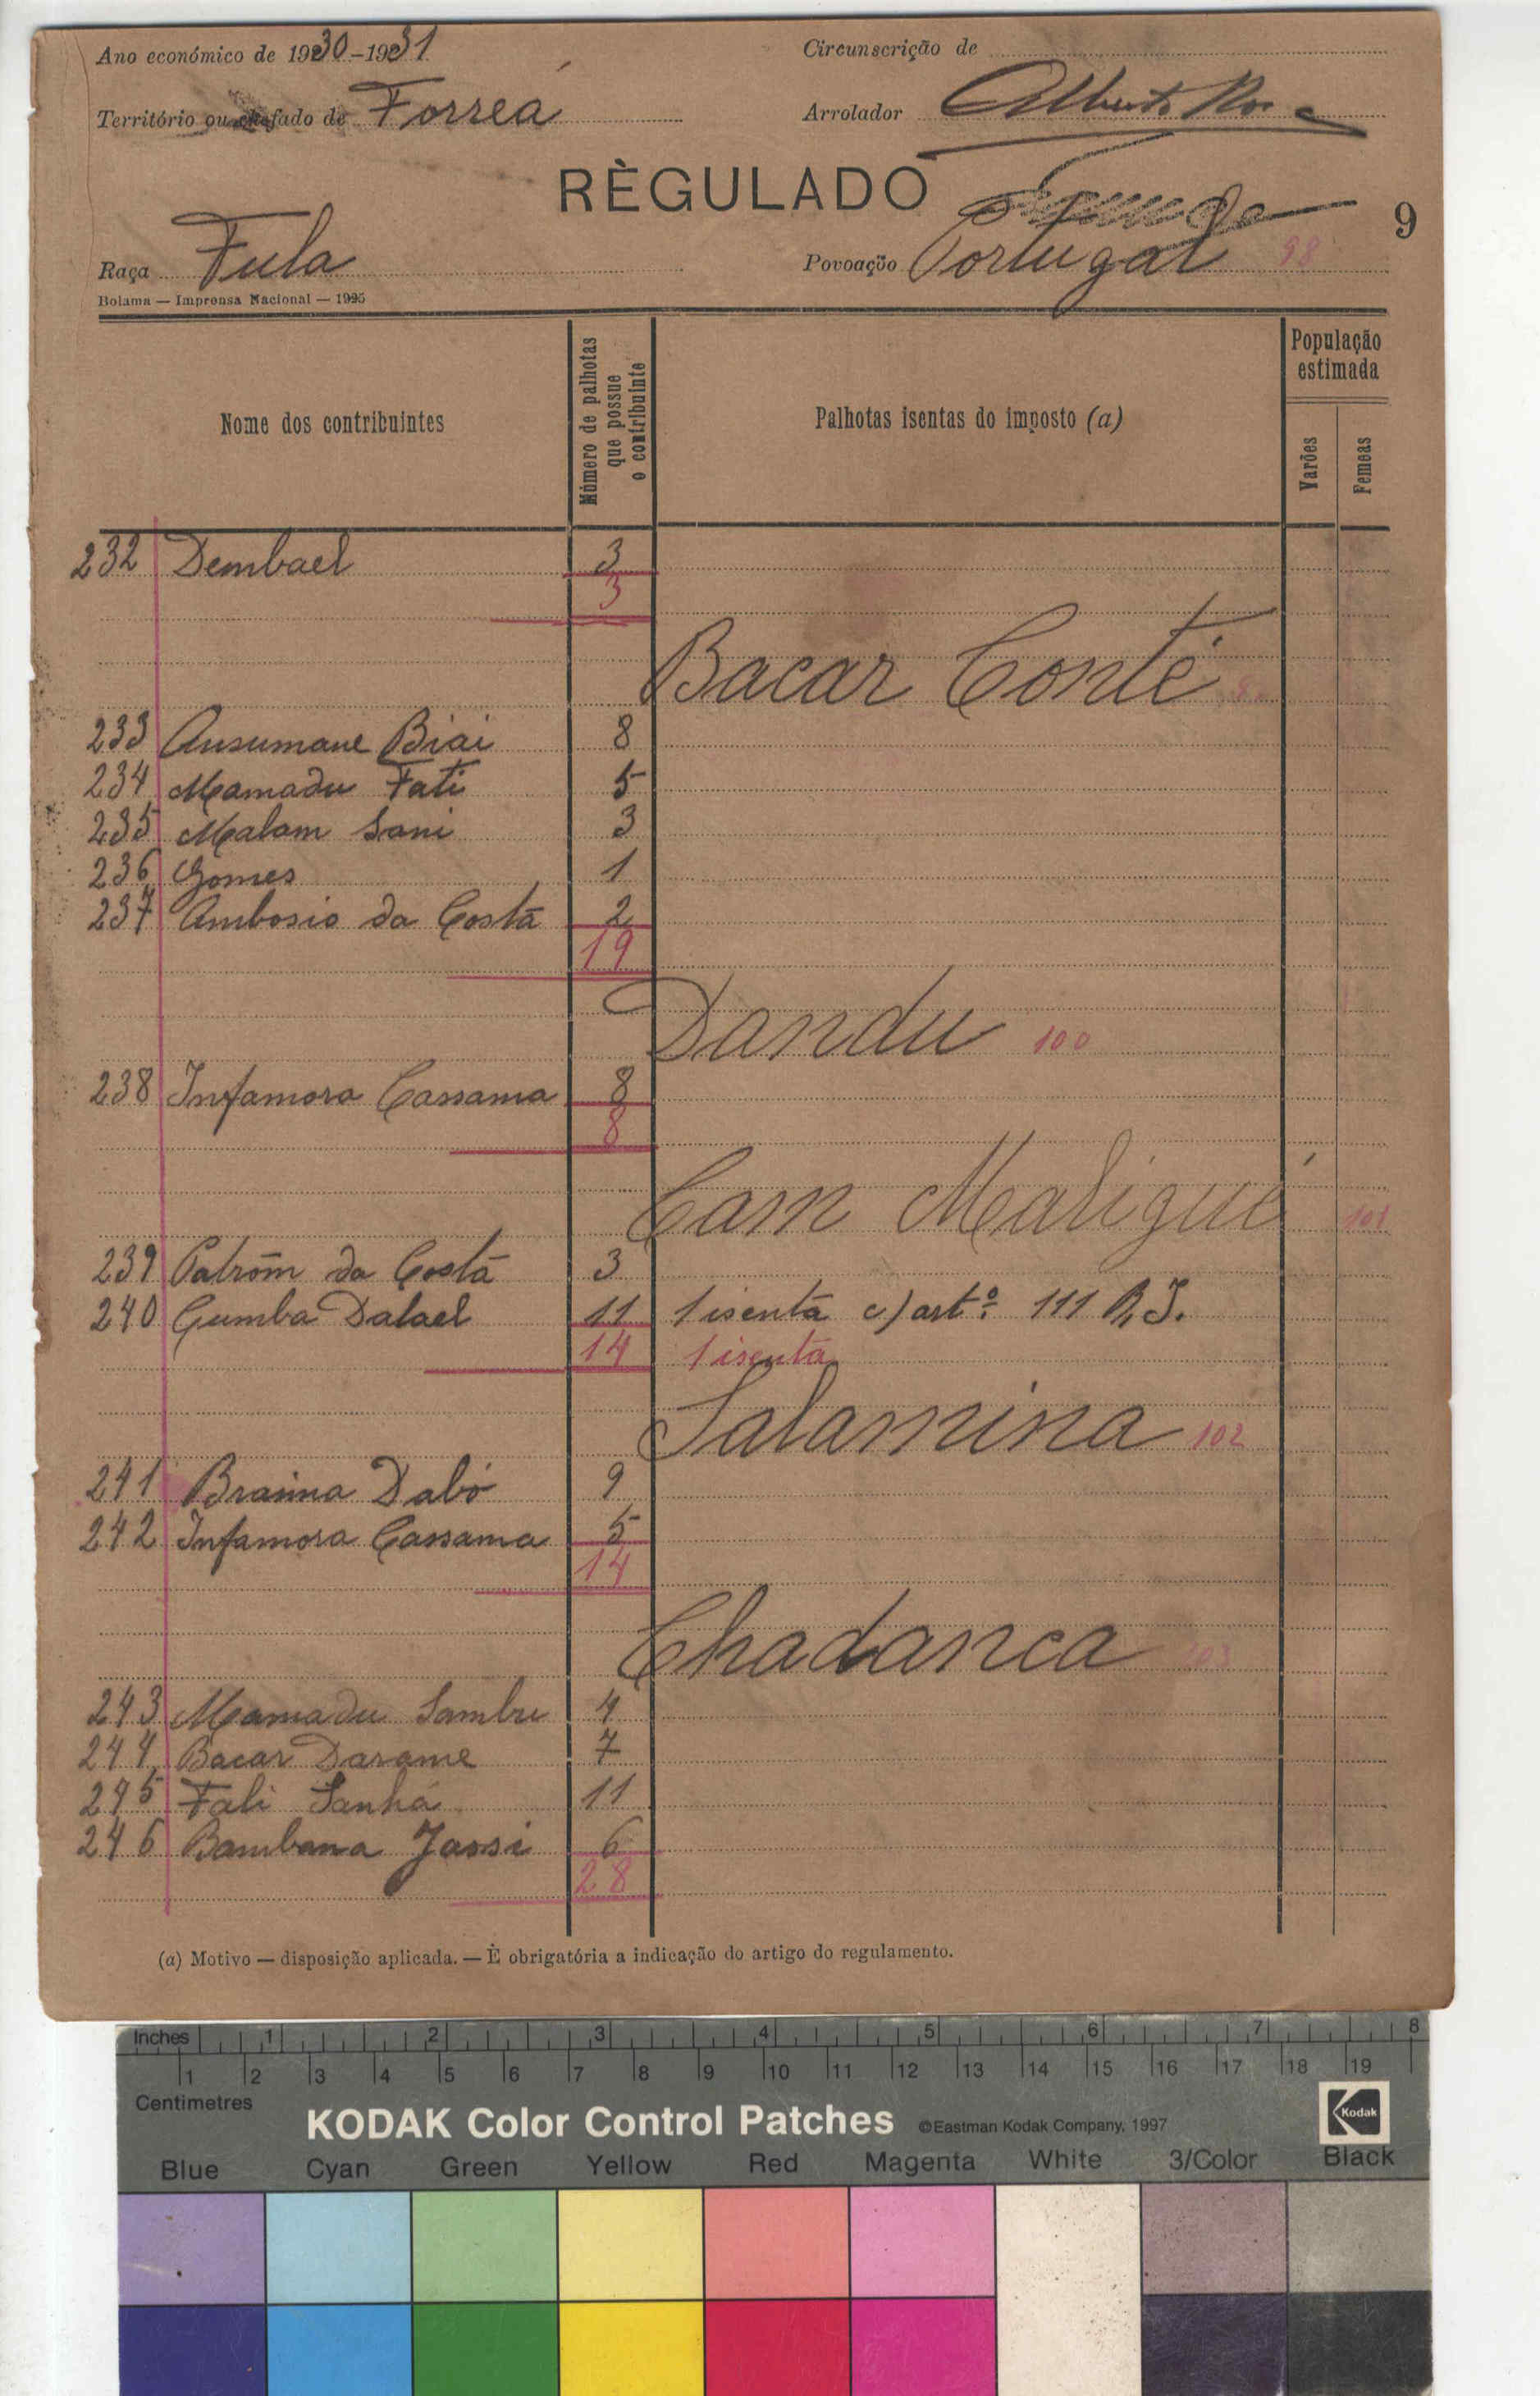 Ano económico de 1930-1931
Circunscrição de
Território ou chefado de Forreá
Arrolador Alberto
RÈGULADO
9
Raça Fula
Povoação Portugal 98
Bolama — Imprensa Nacional — 1925
Nome dos contribuintes
Número de palhotas que possue o contribuinte
Palhotas isentas do imposto (a)
População estimada
Varões
Femeas
232 Dembael 3
3
Bacar Conté
233 Ansumane Biai 8
234 Mamadu Fati 5
235 Malam Sani 3
236 Gomes 1
237 Ambosio da Costa 2
19
Dandu 100
238 Infamora Cassama 8
8
Cam Maligué 101
239 Patrôm da Costa 3
240 Cumba Dalael 11 1 isenta c) artº. 111 R. I.
14 1 isenta
Salamina 102
241 Braima Dabó 9
242 Infamora Cassama 5
14
Chadanca 103
243 Mamadu Sambu 4
244 Bacar Darame 7
245 Fali Sanhá 11
246 Bambana Jassi 6
28
(a) Motivo — disposição aplicada. — É obrigatória a indicação do artigo do regulamento.
Inches 1 2 3 4 5 6 7 8
1 2 3 4 5 6 7 8 9 10 11 12 13 14 15 16 17 18 19
Centimetres
KODAK Color Control Patches ©Eastman Kodak Company, 1997 Kodak
Blue Cyan Green Yellow Red Magenta White 3/Color Black